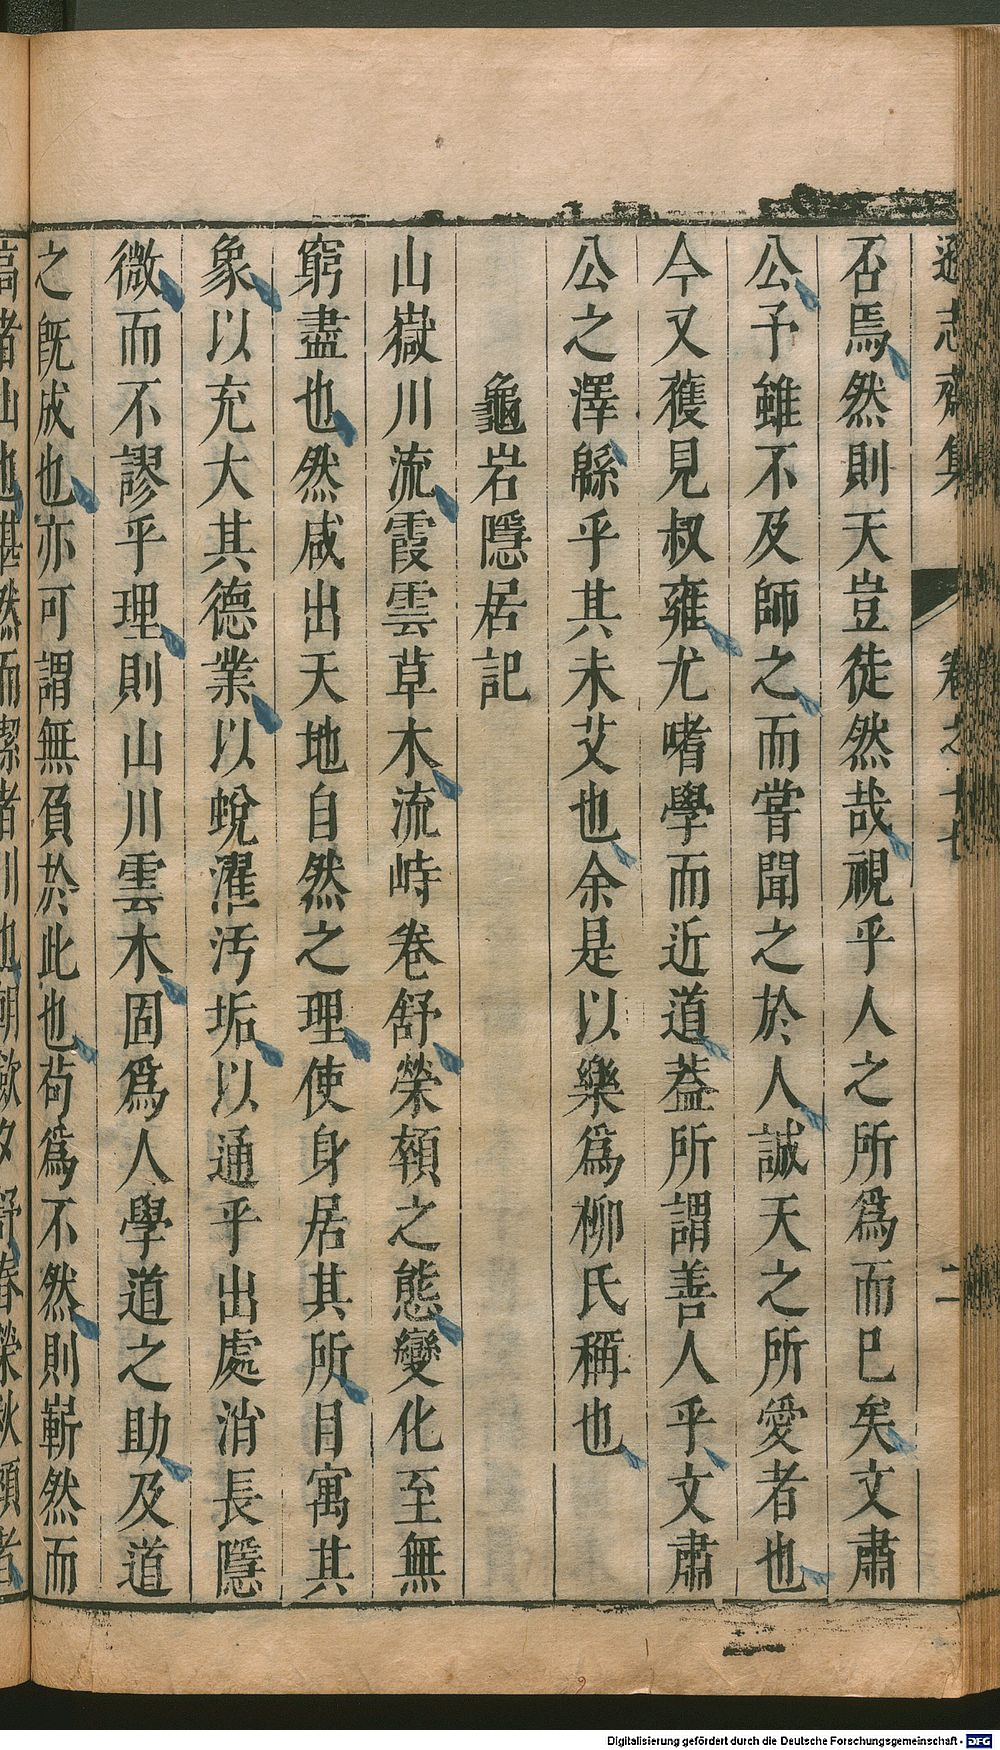 遜志齋集 卷之十七 二
否焉然則天豈徒然哉視乎人之所爲而已矣文肅
公予雖不及師之而嘗聞之於人誠天之所愛者也
今又獲見叔雍尤嗜學而近道葢所謂善人乎文肅
公之澤緜乎其未艾也余是以樂爲柳氏稱也
龜岩隱居記
山嶽川流霞雲草木流峙卷舒榮顇之態變化至無
窮盡也然咸出天地自然之理使身居其所目寓其
象以充大其德業以蛻濯汚垢以通乎出處消長隱
微而不謬乎理則山川雲木固爲人學道之助及道
之旣成也亦可謂無負於此也苟爲不然則嶄然而
高者山也湛然而潔者川也朝歛夕舒春榮秋顇者
Digitalisierung gefördert durch die Deutsche Forschungsgemeinschaft - DFG